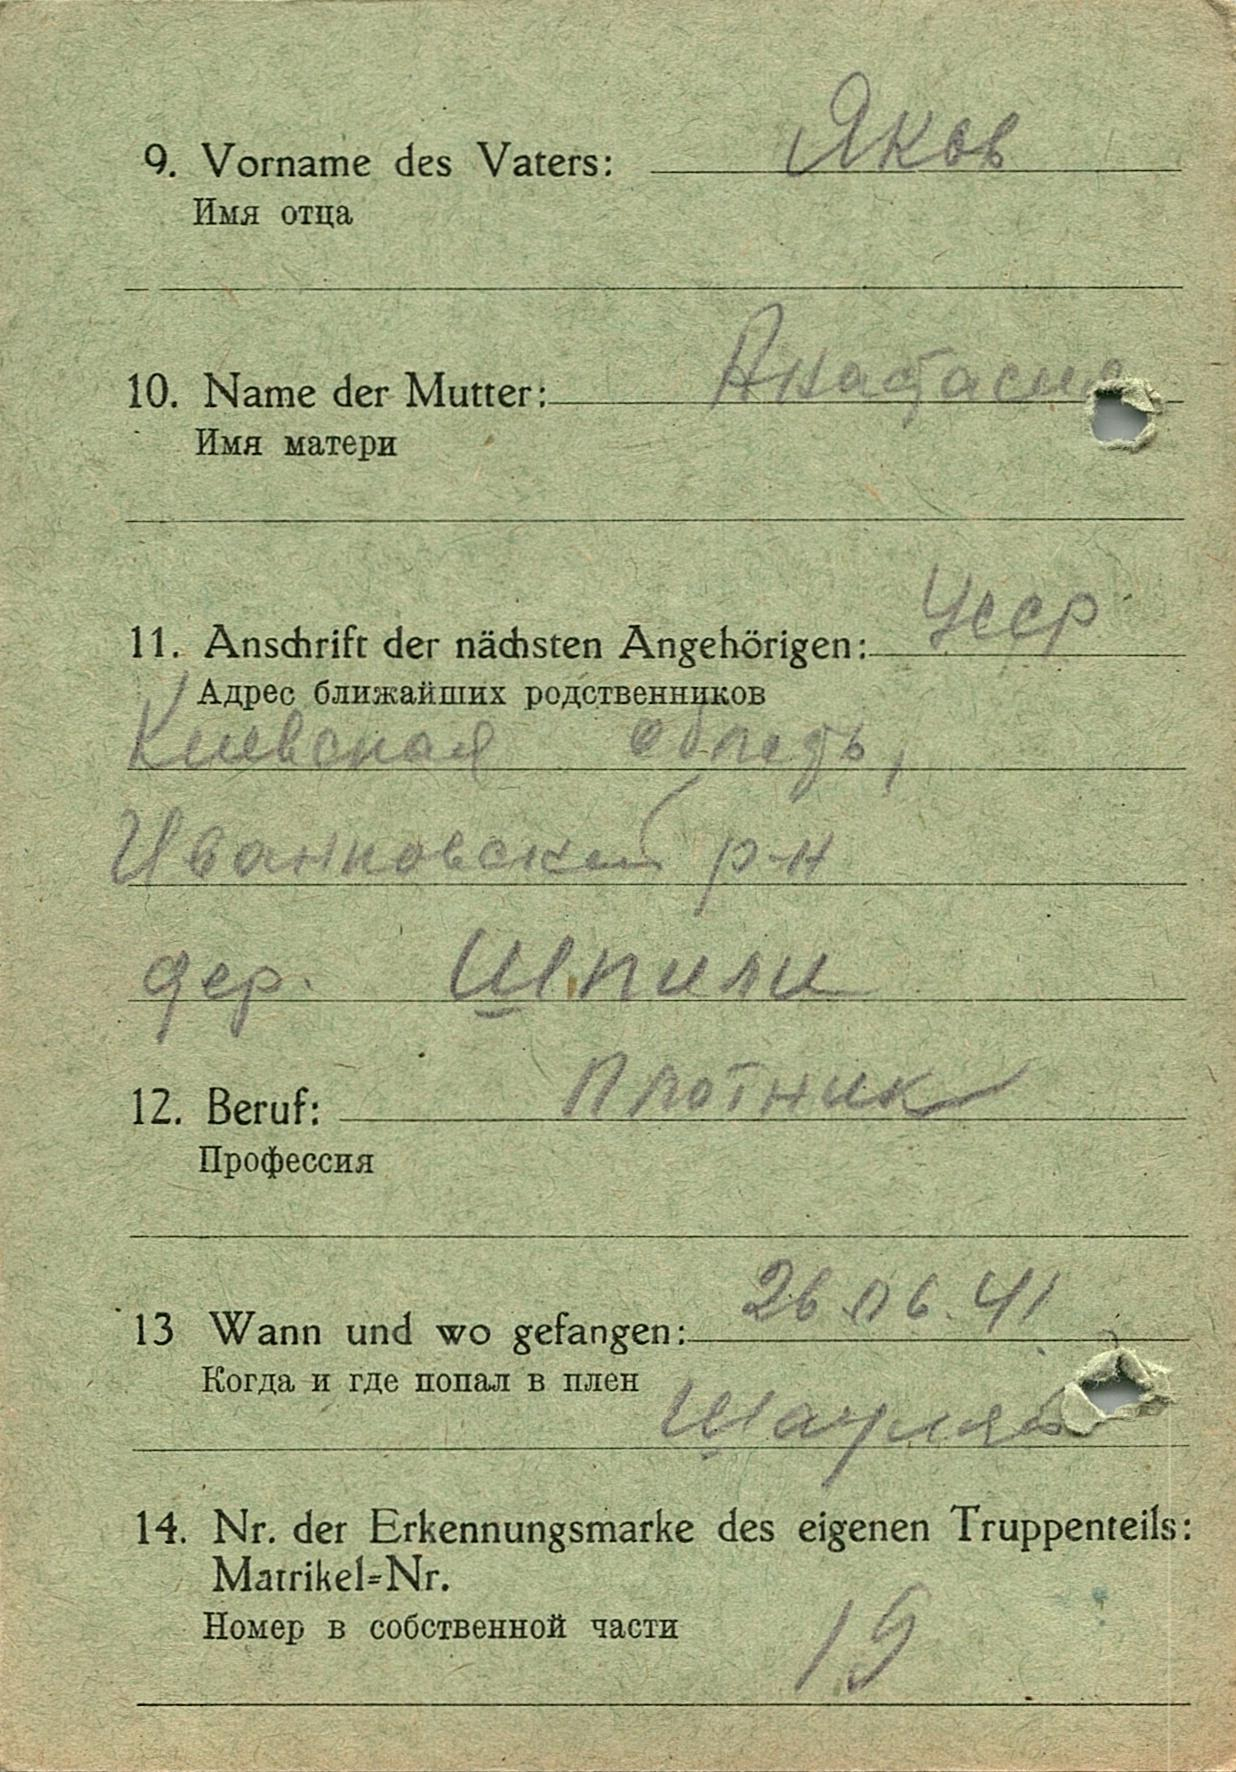 9. Vorname des Vaters: Яков
Имя отца
10. Name der Mutter: Анастасия
Имя матери
11. Anschrift der nächsten Angehörigen: УССР
Адрес ближайших родственников
Киевская область,
Иванковский р-н
дер. Шпили
12. Beruf: плотник
Профессия
13 Wann und wo gefangen: 26.06.41
Когда и где попал в плен
Шауляй
14. Nr. der Erkennungsmarke des eigenen Truppenteils:
Matrikel=Nr.
Номер в собственной части
19